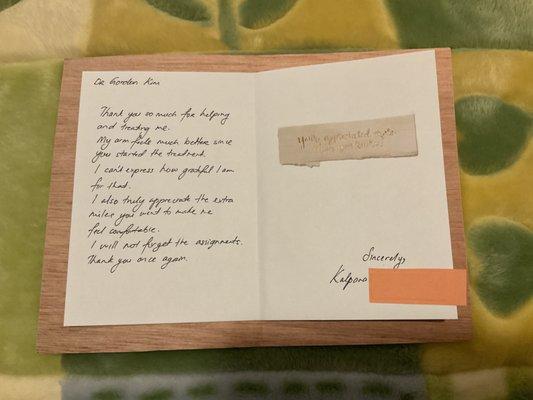 Dr Gorden Kim
Thank you so much for helping
and treating me.
My arm feels much better since
you started the treatment.
I can't express how grateful I am
for that.
I also truly appreciate the extra
miles you went to make me
feel comfortable.
I will not forget the assignments.
Thank you once again.
You're appreciated more
than you
Sincerely,
Kalpana